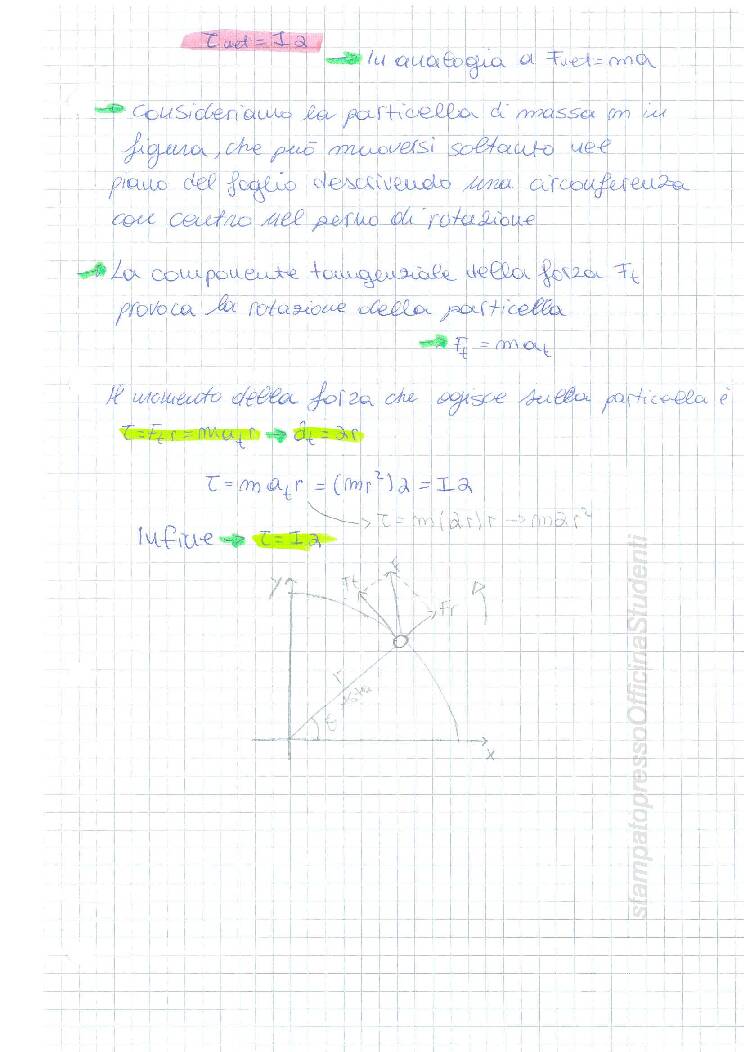 τnet = I α
→ In analogia a Fnet = ma
→ Consideriamo la particella di massa m in
figura, che può muoversi soltanto nel
piano del foglio descrivendo una circonferenza
con centro nel perno di rotazione
→ La componente tangenziale della forza Ft
provoca la rotazione della particella
→ Ft = mat
Il momento della forza che agisce sulla particella è
τ = Ft r = mat r → at = αr
τ = m at r = (mr²) α = I α
→ τ = m(αr)r → mαr²
Infine → τ = I α
y
Ft
F
Fr
r
θ
x
stampatopressoOfficinaStudenti